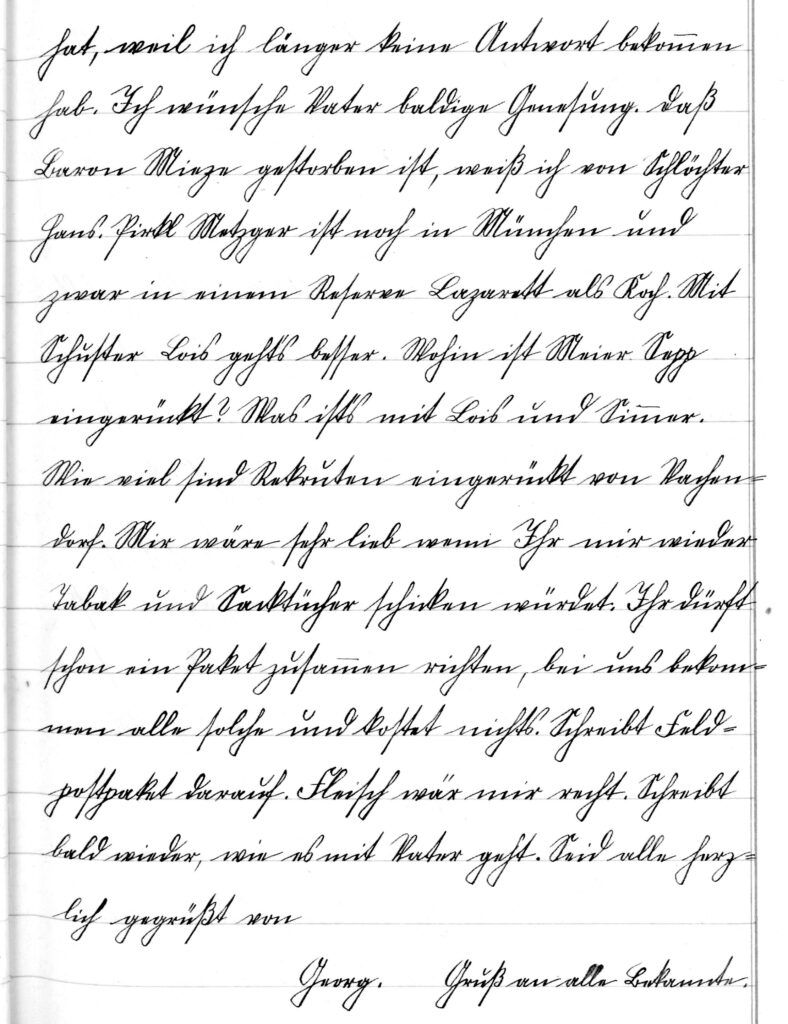 hat, weil ich länger keine Antwort bekom̅en
hab. Ich wünsche Vater baldige Genesung. Daß
Baron Mieze gestorben ist, weiß ich von Schlöchter
Hans. Pirkl Metzger ist noch in München und
zwar in einem Reserve Lazarett als Koch. Mit
Schuster Lois geht's besser. Wohin ist Meier Sepp
eingerückt? Was ist's mit Lois und Sim̅er.
Wie viel sind Rekruten eingerückt von Vachen=
dorf. Mir wäre sehr lieb wenn Ihr mir wieder
Tabak und Sacktücher schicken würdet. Ihr dürft
schon ein Paket zusam̅en richten, bei uns bekom=
men alle solche und kostet nichts. Schreibt Feld=
postpaket darauf. Fleisch wär mir recht. Schreibt
bald wieder, wie es mit Vater geht. Seid alle herz=
lich gegrüßt von
Georg. Gruß an alle Bekannte.